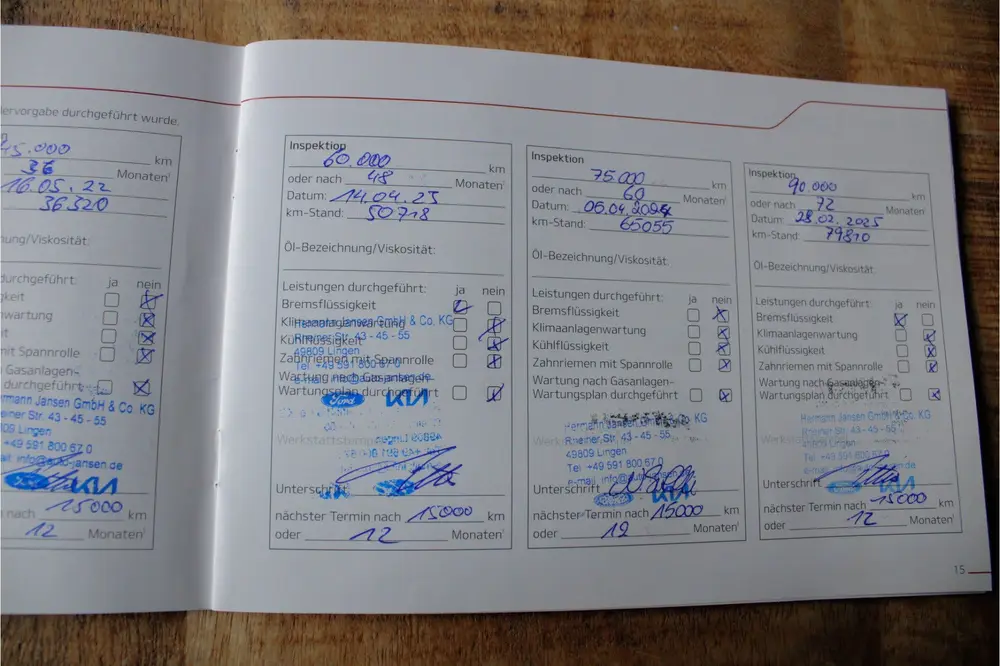 ervorgabe durchgeführt wurde.
45.000 km
36 Monaten¹
16.05.22
36320
nung/Viskosität:
durchgeführt: ja nein
gkeit
nwartung
it
mit Spannrolle
h Gasanlagen-
durchgeführt
rmann Jansen GmbH & Co. KG
einer Str. 43 - 45 - 55
Lingen
+49 591 800 67 0
ail: info@auto-jansen.de
KIA
nach 15000 km
12 Monaten¹
Inspektion
60.000 km
oder nach 48 Monaten¹
Datum: 14.04.23
km-Stand: 50718
Öl-Bezeichnung/Viskosität:
Leistungen durchgeführt: ja nein
Bremsflüssigkeit
Klimaanlagenwartung
Hermann Jansen GmbH & Co. KG
Kühlflüssigkeit
Rheiner Str. 43 - 45 - 55
49809 Lingen
Zahnriemen mit Spannrolle
Tel. +49 591 800 67 0
Wartung nach Gasanlagen-
Wartungsplan durchgeführt
Ford KIA
Unterschrift
nächster Termin nach 15000 km
oder 12 Monaten¹
Inspektion
75.000 km
oder nach 60 Monaten¹
Datum: 06.04.2024
km-Stand: 65055
Öl-Bezeichnung/Viskosität:
Leistungen durchgeführt: ja nein
Bremsflüssigkeit
Klimaanlagenwartung
Kühlflüssigkeit
Zahnriemen mit Spannrolle
Wartung nach Gasanlagen-
Wartungsplan durchgeführt
Hermann Jansen GmbH & Co. KG
Rheiner Str. 43 - 45 - 55
49809 Lingen
Tel. +49 591 800 67 0
Unterschrift KIA
nächster Termin nach 15000 km
oder 12 Monaten¹
Inspektion
90.000 km
oder nach 72 Monaten¹
Datum: 28.02.2025
km-Stand: 79810
Öl-Bezeichnung/Viskosität:
Leistungen durchgeführt: ja nein
Bremsflüssigkeit
Klimaanlagenwartung
Kühlflüssigkeit
Zahnriemen mit Spannrolle
Wartung nach Gasanlagen-
Wartungsplan durchgeführt
Hermann Jansen GmbH & Co. KG
Rheiner Str. 43 - 45 - 55
49809 Lingen
Tel. +49 591 800 67 0
Unterschrift KIA
nächster Termin nach 15000 km
oder 12 Monaten¹
15